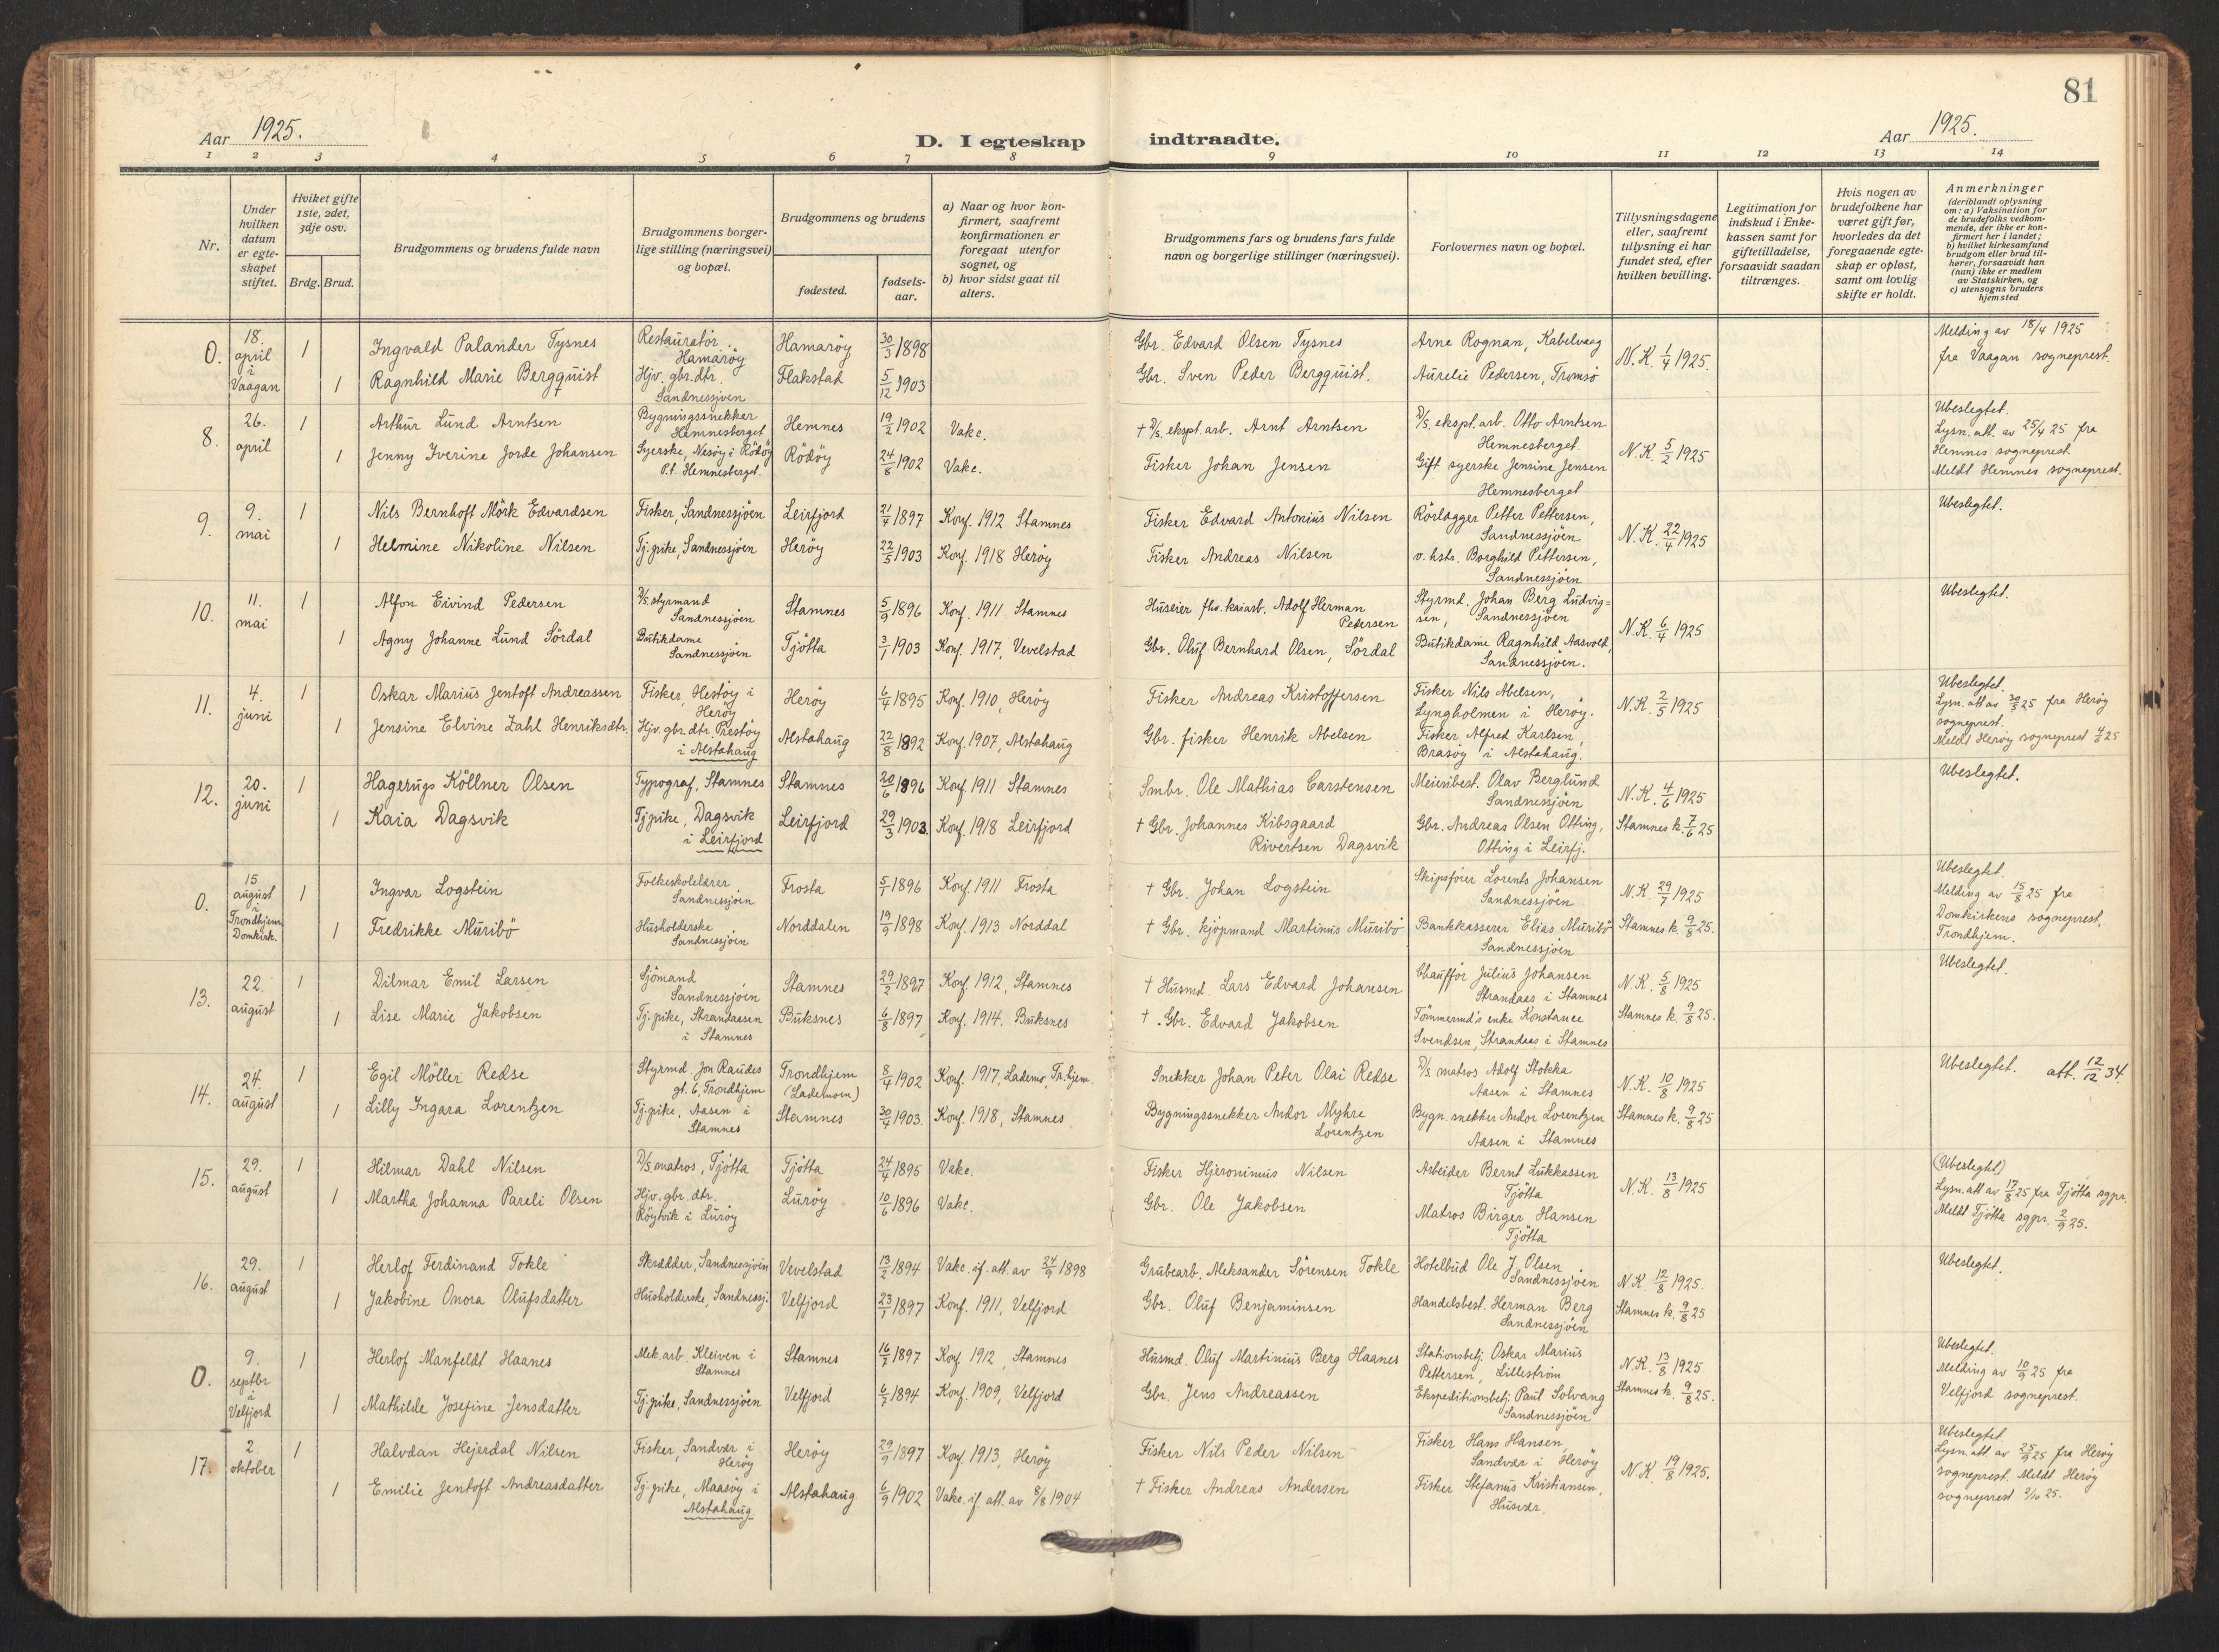 81
Aar 1925.
D. I egteskap indtraadte.
Aar 1925.
1 2 3 4 5 6 7 8 9 10 11 12 13 14
Nr.
Under hvilken datum er egteskapet stiftet.
Hviket gifte 1ste, 2det, 3dje osv.
Brdg. Brud.
Brudgommens og brudens fulde navn
Brudgommens borgerlige stilling (næringsvei) og bopæl.
Brudgommens og brudens
fødested.
fødselsaar.
a) Naar og hvor konfirmert, saafremt konfirmationen er foregaat utenfor sognet, og
b) hvor sidst gaat til alters.
Brudgommens fars og brudens fars fulde navn og borgerlige stillinger (næringsvei).
Forlovernes navn og bopæl.
Tillysningsdagene eller, saafremt tillysning ei har fundet sted, efter hvilken bevilling.
Legitimation for indskud i Enkekassen samt for giftetilladelse, forsaavidt saadan tiltrænges.
Hvis nogen av brudefolkene har været gift før, hvorledes da det foregaaende egteskap er opløst, samt om lovlig skifte er holdt.
Anmerkninger (deriblandt oplysning om: a) Vaksination for de brudefolks vedkommende, der ikke er konfirmert her i landet; b) hvilket kirkesamfund brudgom eller brud tilhører, forsaavidt han (hun) ikke er medlem av Statskirken, og c) utensogns bruders hjemsted
0. 18. april i Vaagan 1 Ingvald Palander Tysnes Restauratør. Hamarøy Hamarøy 30/3 1898 Gbr. Edvard Olsen Tysnes Arne Rognan, Kabelvaag N.K. 1/4 1925. Melding av 18/4 1925 fra Vaagan sogneprest.
1 Ragnhild Marie Bergquist Hjv. gbr. dtr. Sandnessjøen Flakstad 5/12 1903 Gbr. Sven Peder Bergquist. Aurelie Pedersen, Tromsø
8. 26. april 1 Arthur Lund Arntsen Bygningssnekker Hemnesberget Hemnes 19/2 1902 Vakc. † D/S. ekspt. arb. Arnt Arntsen D/S. ekspt. arb. Otto Arntsen Hemnesberget N.K. 5/2 1925 Ubeslegtet. Lysn. att. av 25/4 25 fra Hemnes sogneprest. Meldt Hemnes sogneprest.
1 Jenny Iverine Jorde Johansen Syerske, Nesøy i Rödöy P.t. Hemnesberget. Rödöy 24/8 1902 Vakc. Fisker Johan Jensen Gift syerske Jensine Jensen Hemnesberget
9. 9. mai 1 Nils Bernhoft Mörk Edvardsen Fisker, Sandnessjöen Leirfjord 21/4 1897 Konf. 1912 Stamnes Fisker Edvard Antonius Nilsen Rörlægger Petter Pettersen, Sandnessjöen N.K. 22/4 1925 Ubeslegtet.
1 Helmine Nikoline Nilsen Tj. pike, Sandnessjöen Heröy 22/5 1903 Konf. 1918 Heröy Fisker Andreas Nilsen o. hstr. Borghild Pettersen, Sandnessjöen
10. 11. mai 1 Alfon Eivind Pedersen D/S. styrmand Sandnessjöen Stamnes 5/9 1896 Konf. 1911 Stamnes Huseier fhv. kaiarb. Adolf Herman Pedersen Styrmd. Johan Berg Ludvigsen, Sandnessjöen N.K. 6/4 1925 Ubeslegtet.
1 Agny Johanne Lund Sördal Butikdame Sandnessjöen Tjötta 3/1 1903 Konf. 1917, Vevelstad Gbr. Oluf Bernhard Olsen, Sördal Butikdame Ragnhild Aasvold, Sandnessjöen.
11. 4. juni 1 Oskar Marius Jentoft Andreassen Fisker, Hestöy i Heröy Heröy 6/4 1895 Konf. 1910, Heröy Fisker Andreas Kristoffersen Fisker Nils Abelsen, Lyngholmen i Heröy. N.K. 2/5 1925 Ubeslegtet. Lysn. att av 30/5 25 fra Heröy sogneprest. Meldt Heröy sogneprest 4/6 25
1 Jensine Elvine Zahl Henriksdtr. Hjv. gbr. dtr. Prestöy i Alstahaug Alstahaug 22/8 1892 Konf. 1907, Alstahaug Gbr. fisker Henrik Abelsen Fisker Alfred Karlsen, Brasöy i Alstahaug.
12. 20. juni 1 Hagerups Köllner Olsen Typograf, Stamnes Stamnes 20/6 1896 Konf. 1911 Stamnes Smbr. Ole Mathias Carstensen Meieribest. Olav Berglund Sandnessjöen N.K. 4/6 1925 Ubeslegtet.
1 Kaia Dagsvik Tj pike, Dagsvik i Leirfjord Leirfjord 29/3 1903. Konf. 1918 Leirfjord † Gbr. Johannes Kibsgaard Rivertsen Dagsvik Gbr. Andreas Olsen Otting, Otting i Leirfj. Stamnes k. 7/6 25
0. 15 august i Trondhjem Domkirk. 1 Ingvar Logstein Folkeskolelærer, Sandnessjöen Frosta 5/1 1896 Konf. 1911 Frosta † Gbr. Johan Logstein Skipsförer Lorents Johansen Sandnessjöen N.K. 29/7 1925 Ubeslegtet. Melding av 15/8 25 fra Domkirkens sogneprest, Trondhjem.
1 Fredrikke Muribö Husholderske Sandnessjöen Norddalen 19/9 1898 Konf. 1913 Norddal † Gbr. kjöpmand Martinus Muribö Bankkasserer Elias Muribö Sandnessjöen Stamnes k. 9/8 25.
13. 22. august 1 Dilmar Emil Larsen Sjömand Sandnessjöen Stamnes 29/2 1897 Konf. 1912, Stamnes † Husmd. Lars Edvard Johansen Chauffør Julius Johansen Strandaas i Stamnes N.K. 5/8 1925 Ubeslegtet.
1 Lise Marie Jakobsen Tj. pike, Strandaasen i Stamnes Buksnes 6/8 1897 Konf. 1914. Buksnes † Gbr. Edvard Jakobsen Tömmermd's enke Konstance Svendsen, Strandaas i Stamnes Stamnes k. 9/8 25.
14. 24. august 1 Egil Möller Redse Styrmd. Jon Raudes gt. 6, Trondhjem Trondhjem (Lademoen) 8/4 1902 Konf. 1917, Lademo, Tr.hjem. Snekker Johan Peter Olai Redse D/S matros Adolf Stokka Aasen i Stamnes N.K. 10/8 1925 Ubeslegtet. att. 12/12 34.
1 Lilly Ingara Lorentzen Tj. pike, Aasen i Stamnes Stamnes 30/4 1903. Konf. 1918, Stamnes Bygningssnekker Andor Myhre Lorentzen Bygn. snekker Andor Lorentzen Aasen i Stamnes Stamnes k. 9/8 25
15. 29. august 1 Hilmar Dahl Nilsen D/S matros, Tjötta Tjötta 24/4 1895 Vakc. Fisker Hjeronimus Nilsen Arbeider Bernt Lukkassen Tjötta N.K. 13/8 1925 (Ubeslegtet) Lysn. att av 17/8 25 fra Tjötta sgpr. Meldt Tjötta sgpr. 2/9 25.
1 Martha Johanna Pareli Olsen Hjv. gbr. dtr. Röytvik i Luröy Luröy 10/6 1896 Vakc. Gbr. Ole Jakobsen Matros Birger Hansen Tjötta
16. 29. august 1 Herlof Ferdinand Tokle Skrædder, Sandnessjöen Vevelstad 13/2 1894 Vakc. if. att. av 24/9 1898 Grubearb. Aleksander Sörensen Tokle Hotelbud Ole J. Olsen Sandnessjöen N.K. 12/8 1925. Ubeslegtet.
1 Jakobine Onora Olufsdatter Husholderske, Sandnessj. Velfjord 23/1 1897 Konf. 1911, Velfjord Gbr. Oluf Benjaminsen Handelsbest. Herman Berg Sandnessjöen Stamnes k. 9/8 25
0. 9. septbr i Velfjord 1 Herlof Manfeldt Haanes Mek. arb. Kleiven i Stamnes Stamnes 16/7 1897 Konf. 1912, Stamnes Husmd. Oluf Martinius Berg Haanes Stationsbetj. Oskar Marius Pettersen, Lilleström N.K. 13/8 1925 Ubeslegtet. Melding av 10/9 25 fra Velfjord sogneprest.
1 Mathilde Josefine Jensdatter Tj. pike, Sandnessjöen Velfjord 6/7 1894 Konf. 1909, Velfjord Gbr. Jens Andreassen Ekspeditionsbetj. Paul Solvang Sandnessjöen Stamnes k. 9/8 25.
17. 2. oktober 1 Halvdan Hejerdal Nilsen Fisker, Sandvær i Heröy Heröy 29/9 1897 Konf. 1913, Heröy Fisker Nils Peder Nilsen Fisker Hans Hansen, Sandvær i Heröy N.K. 19/8 1925. Ubeslegtet. Lysn. att av 25/9 25 fra Heröy sogneprest. Meldt Heröy sogneprest 2/10 25.
1 Emilie Jentoft Andreasdatter Tj. pike, Maasöy i Alstahaug Alstahaug 6/9 1902 Vakc. if. att. av 8/8 1904 † Fisker Andreas Andersen Fisker Stefanus Kristiansen, Husvær.